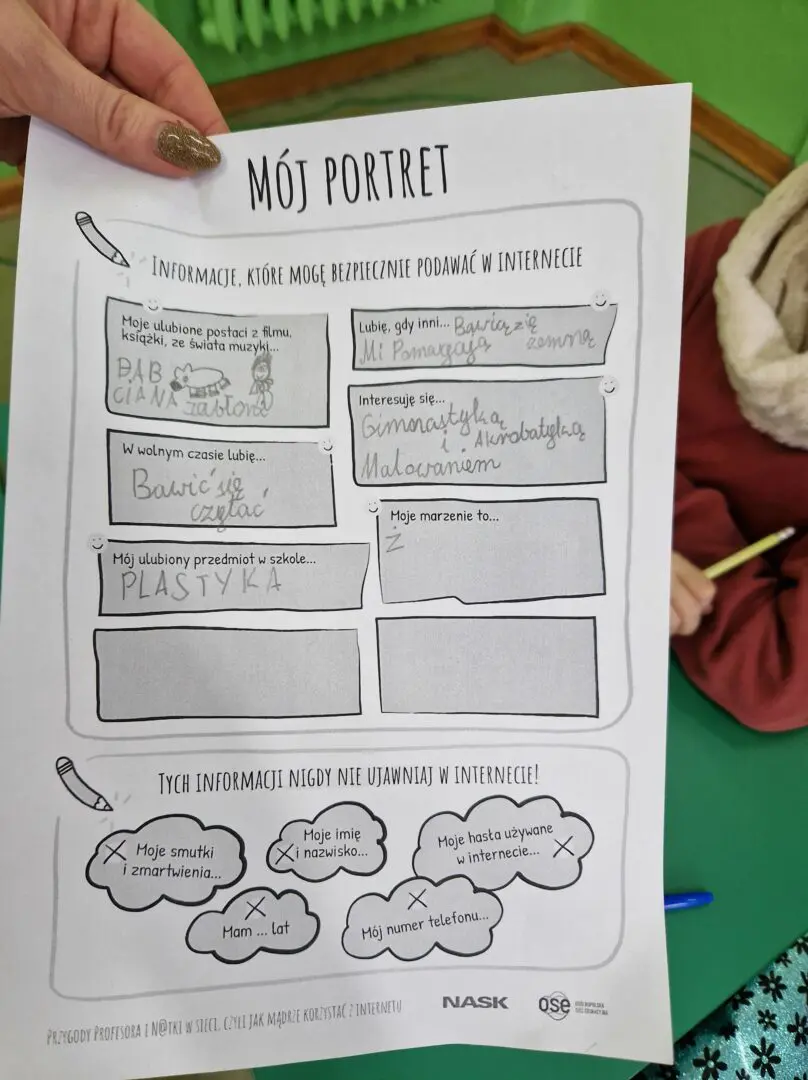 MÓJ PORTRET
INFORMACJE, KTÓRE MOGĘ BEZPIECZNIE PODAWAĆ W INTERNECIE
Moje ulubione postaci z filmu,
książki, ze świata muzyki...
DĄB
CIANA Jabłoné
Lubię, gdy inni... Bawią zię
Mi Pomagają zemną
Interesuję się...
Gimnastyką
i Akrobatyką
Malowaniem
W wolnym czasie lubię...
Bawić się
czytać
Moje marzenie to...
Ż
Mój ulubiony przedmiot w szkole...
PLASTYKA
TYCH INFORMACJI NIGDY NIE UJAWNIAJ W INTERNECIE!
Moje smutki
i zmartwienia...
Moje imię
i nazwisko...
Moje hasła używane
w internecie...
Mam ... lat
Mój numer telefonu...
PRZYGODY PROFESORA I N@TKI W SIECI, CZYLI JAK MĄDRZE KORZYSTAĆ Z INTERNETU
NASK
OSE OGÓLNOPOLSKA
SIEĆ EDUKACYJNA